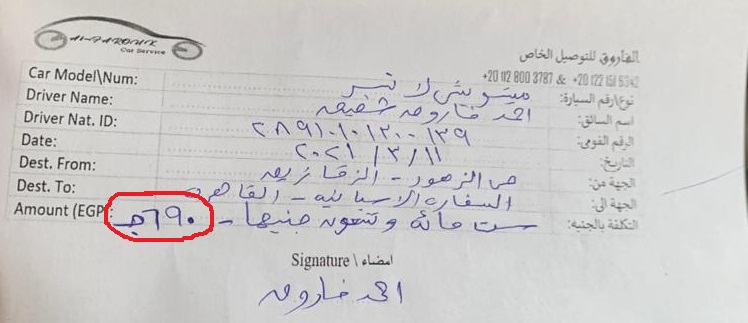 AL-FAROUK
Car Service
الفاروق للتوصيل الخاص
+20 112 800 3787 & +20 122 151 6342
Car Model\Num: ميتسوبيشي لانسر نوع/رقم السيارة:
Driver Name: احمد فاروق شفيق اسم السائق:
Driver Nat. ID: ٢٨٩١٠١٠١٣٠٠١٣٩ الرقم القومى:
Date: ٢٠٢١/٣/١١ التاريخ:
Dest. From: حى الزهور - الزقازيق الجهة من:
Dest. To: السفاره الاسبانيه - القاهره الجهة الى:
Amount (EGP): ست مائة وتسعون جنيها - ٦٩٠ج التكلفة بالجنيه:
Signature \ امضاء
احمد فاروق